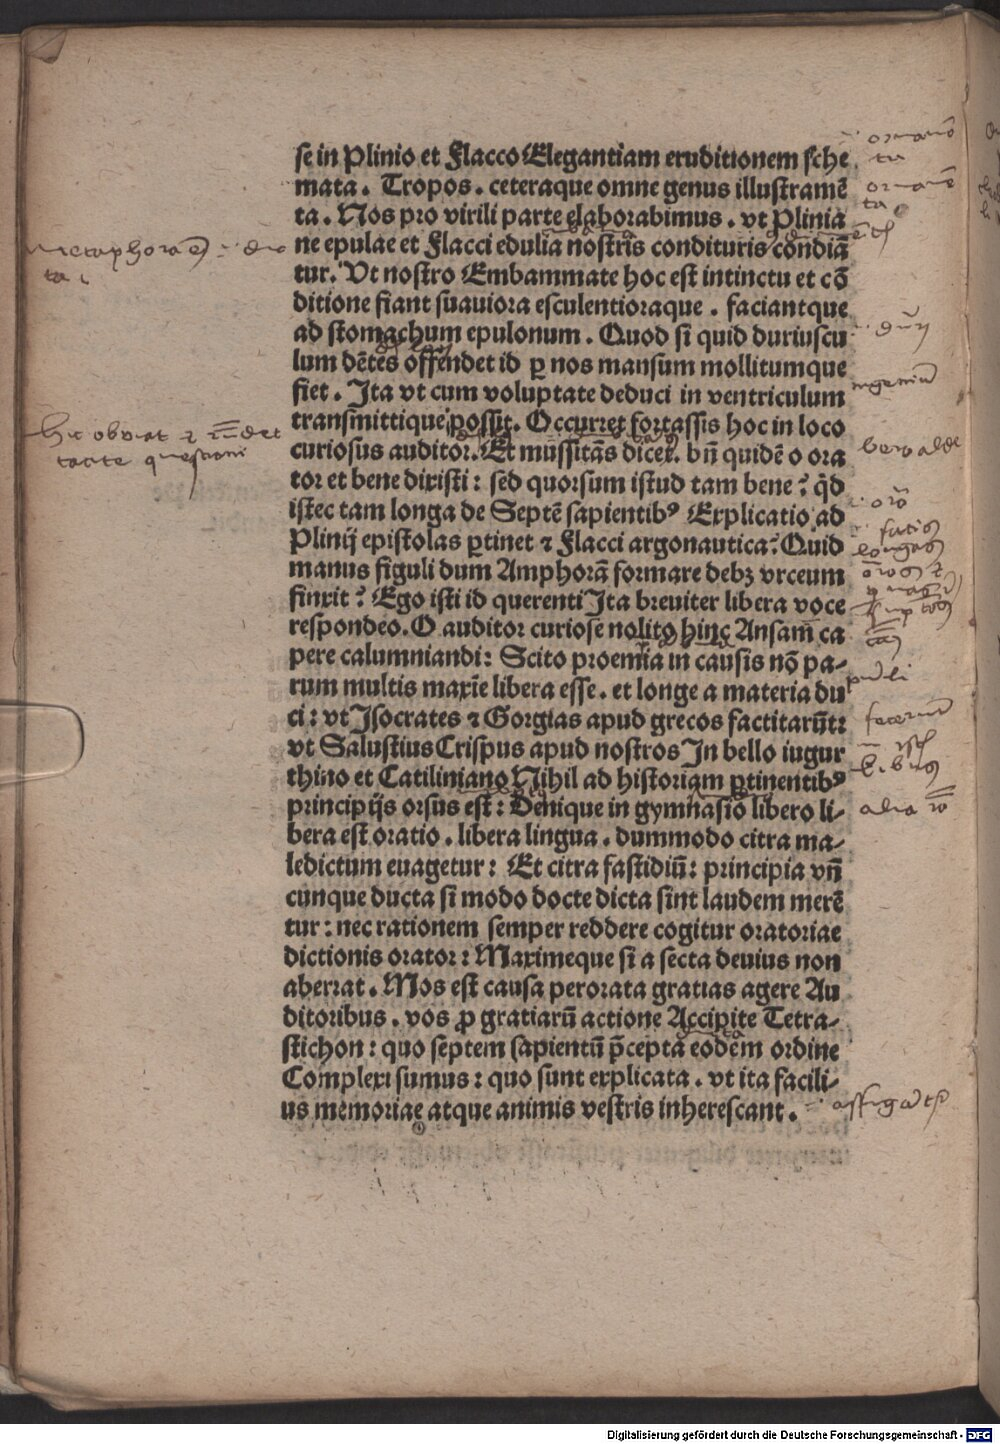 se in Plinio et Flacco Elegantiam eruditionem sche
mata. Tropos. ceteraque omne genus illustramē
ta. Nos pro virili parte elaborabimus. vt Plinia
ne epulae et Flacci edulia nostris condituris condiā
tur. Vt nostro Embammate hoc est intinctu et cō
ditione fiant suauiora esculentioraque. faciantque
ad stomachum epulonum. Quod si quid duriuscu
lum dētes offendet id ꝑ nos mansum mollitumque
fiet. Ita vt cum voluptate deduci in ventriculum
transmittique possit. Occurret fortassis hoc in loco
curiosus auditor. Et mussitās dicet. bn̄ quidē o ora
tor et bene dixisti: sed quorsum istud tam bene? q̄d
istec tam longa de Septē sapientibꝰ Explicatio ad
Plinij epistolas ꝑtinet ⁊ Flacci argonautica? Quid
manus figuli dum Amphorā formare debꝫ vrceum
finxit? Ego isti id querenti Ita breuiter libera voce
respondeo. O auditor curiose nolito hinc Ansam ca
pere calumniandi: Scito proemia in causis nō pa-
rum multis maxīe libera esse. et longe a materia du
ci: vt Isocrates ⁊ Gorgias apud grecos factitarūt:
vt Salustius Crispus apud nostros In bello iugur
thino et Catiliniano Nihil ad historiam ꝑtinentibꝰ
principijs orsus est: Denique in gymnasio libero li-
bera est oratio. libera lingua. dummodo citra ma-
ledictum euagetur: Et citra fastidiū: principia vn̄
cunque ducta si modo docte dicta sint laudem merē
tur: nec rationem semper reddere cogitur oratoriae
dictionis orator: Maximeque si a secta deuius non
aberrat. Mos est causa perorata gratias agere Au
ditoribus. vos ꝓ gratiarū actione Accipite Tetra-
stichon: quo septem sapientū p̄cepta eodem ordine
Complexi sumus: quo sunt explicata. vt ita facili-
us memoriae atque animis vestris inherescant.
Digitalisierung gefördert durch die Deutsche Forschungsgemeinschaft - DFG